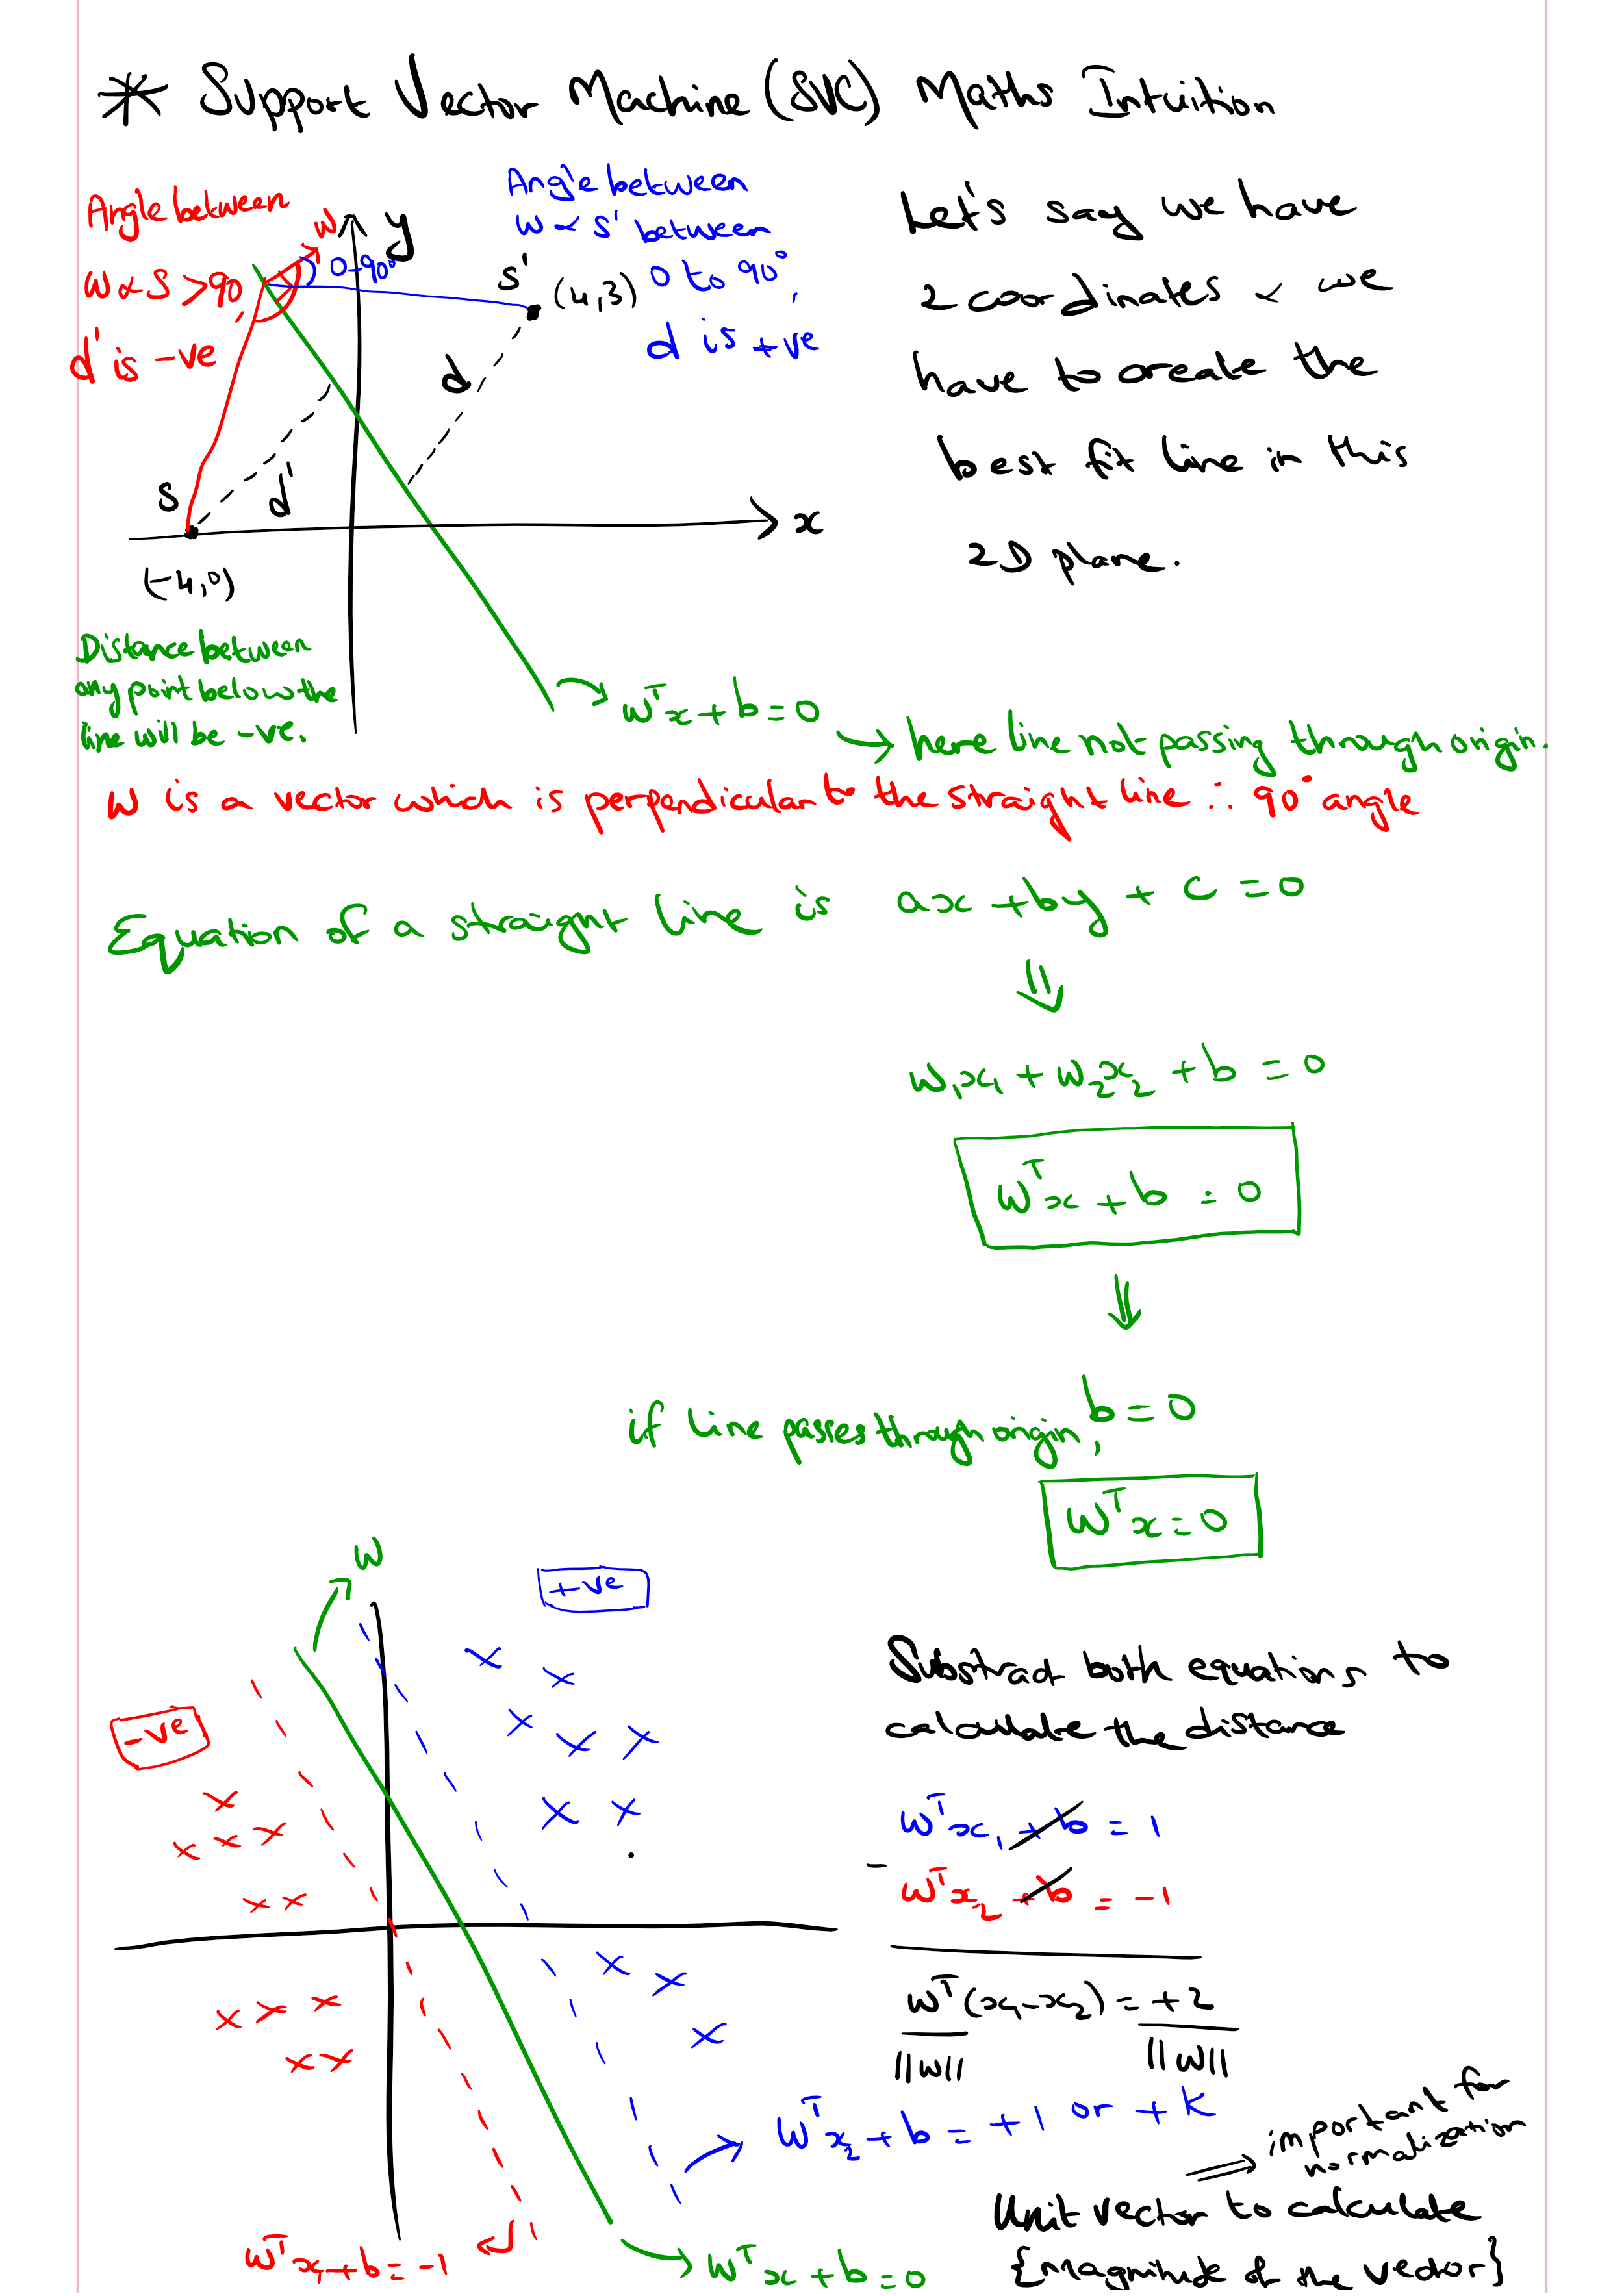 * Support Vector Machine (SVC) Maths Intuition
Angle between
w & s > 90°,
d' is -ve
w
y
0-90°
Angle between
w & s' between
0 to 90°,
d is +ve
s'
(4,3)
d
s
d'
(-4,0)
x
Let's say we have
2 coordinates & we
have to create the
best fit line in this
2D plane.
Distance between
any point below the
line will be -ve.
wᵀx + b = 0
→ here line not passing through origin.
w is a vector which is perpendicular to the straight line ∴ 90° angle
Equation of a straight line is ax + by + c = 0
⇓
w₁x₁ + w₂x₂ + b = 0
wᵀx + b = 0
⇓
if line passes through origin, b = 0
wᵀx = 0
w
+ve
-ve
Substract both equations to
calculate the distance
wᵀx₁ + b = 1
- wᵀx₂ + b = -1
wᵀ(x₁-x₂) = +2
||w|| ||w||
wᵀx₂ + b = +1 or +K
⇒ important for
normalization
Unit vector to calculate
{magnitude of the vector}
wᵀx₁ + b = -1
wᵀx + b = 0